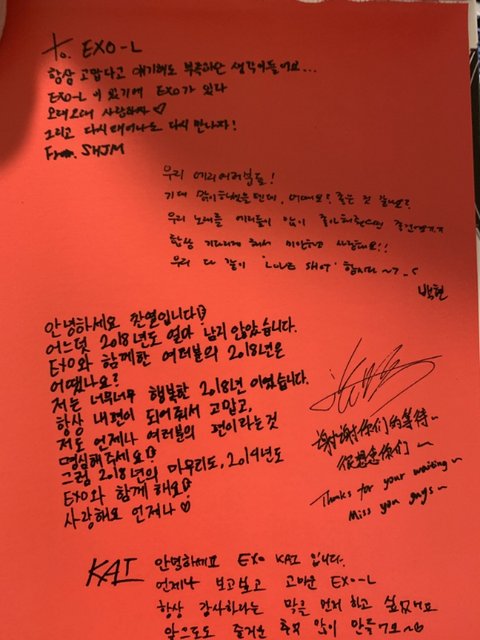 to. EXO-L
항상 고맙다고 얘기해도 부족하단 생각이들어요...
EXO-L이 있기에 EXO가 있다
오래오래 사랑하자♡
그리고 다시 태어나도 다시 만나자!
From. SHJM
우리 에리여러분들!
기대 많이하셨을텐데, 어때요? 좋은 것 같나요?
우리 노래를 에리들이 많이 좋아해줬으면 좋겠
항상 기다리게 해서 미안하고 사랑해요!!
우리 다 같이 'LOVE SHOT'
백현
안녕하세요 찬열입니다!
어느덧 2018년도 얼마 남지 않았습니다.
EXO와 함께한 여러분의 2018년은
어땠나요?
저는 너무너무 행복한 2018년 이었습니다.
항상 내편이 되어줘서 고맙고,
저도 언제나 여러분의 편이라는것
명심해주세요!
그럼 2018년의 마무리도, 2019년도
EXO와 함께 해요!
사랑해요 언제나♡
谢谢你们的等待~
很想念你们~
Thanks for your waiting~
Miss you guys~
KAI
안녕하세요 EXO KAI 입니다.
언제나 보고보고 고마운 EXO-L
항상 감사하다는 말을 먼저 하고 싶
앞으로도 즐거운 추억 많이 만들